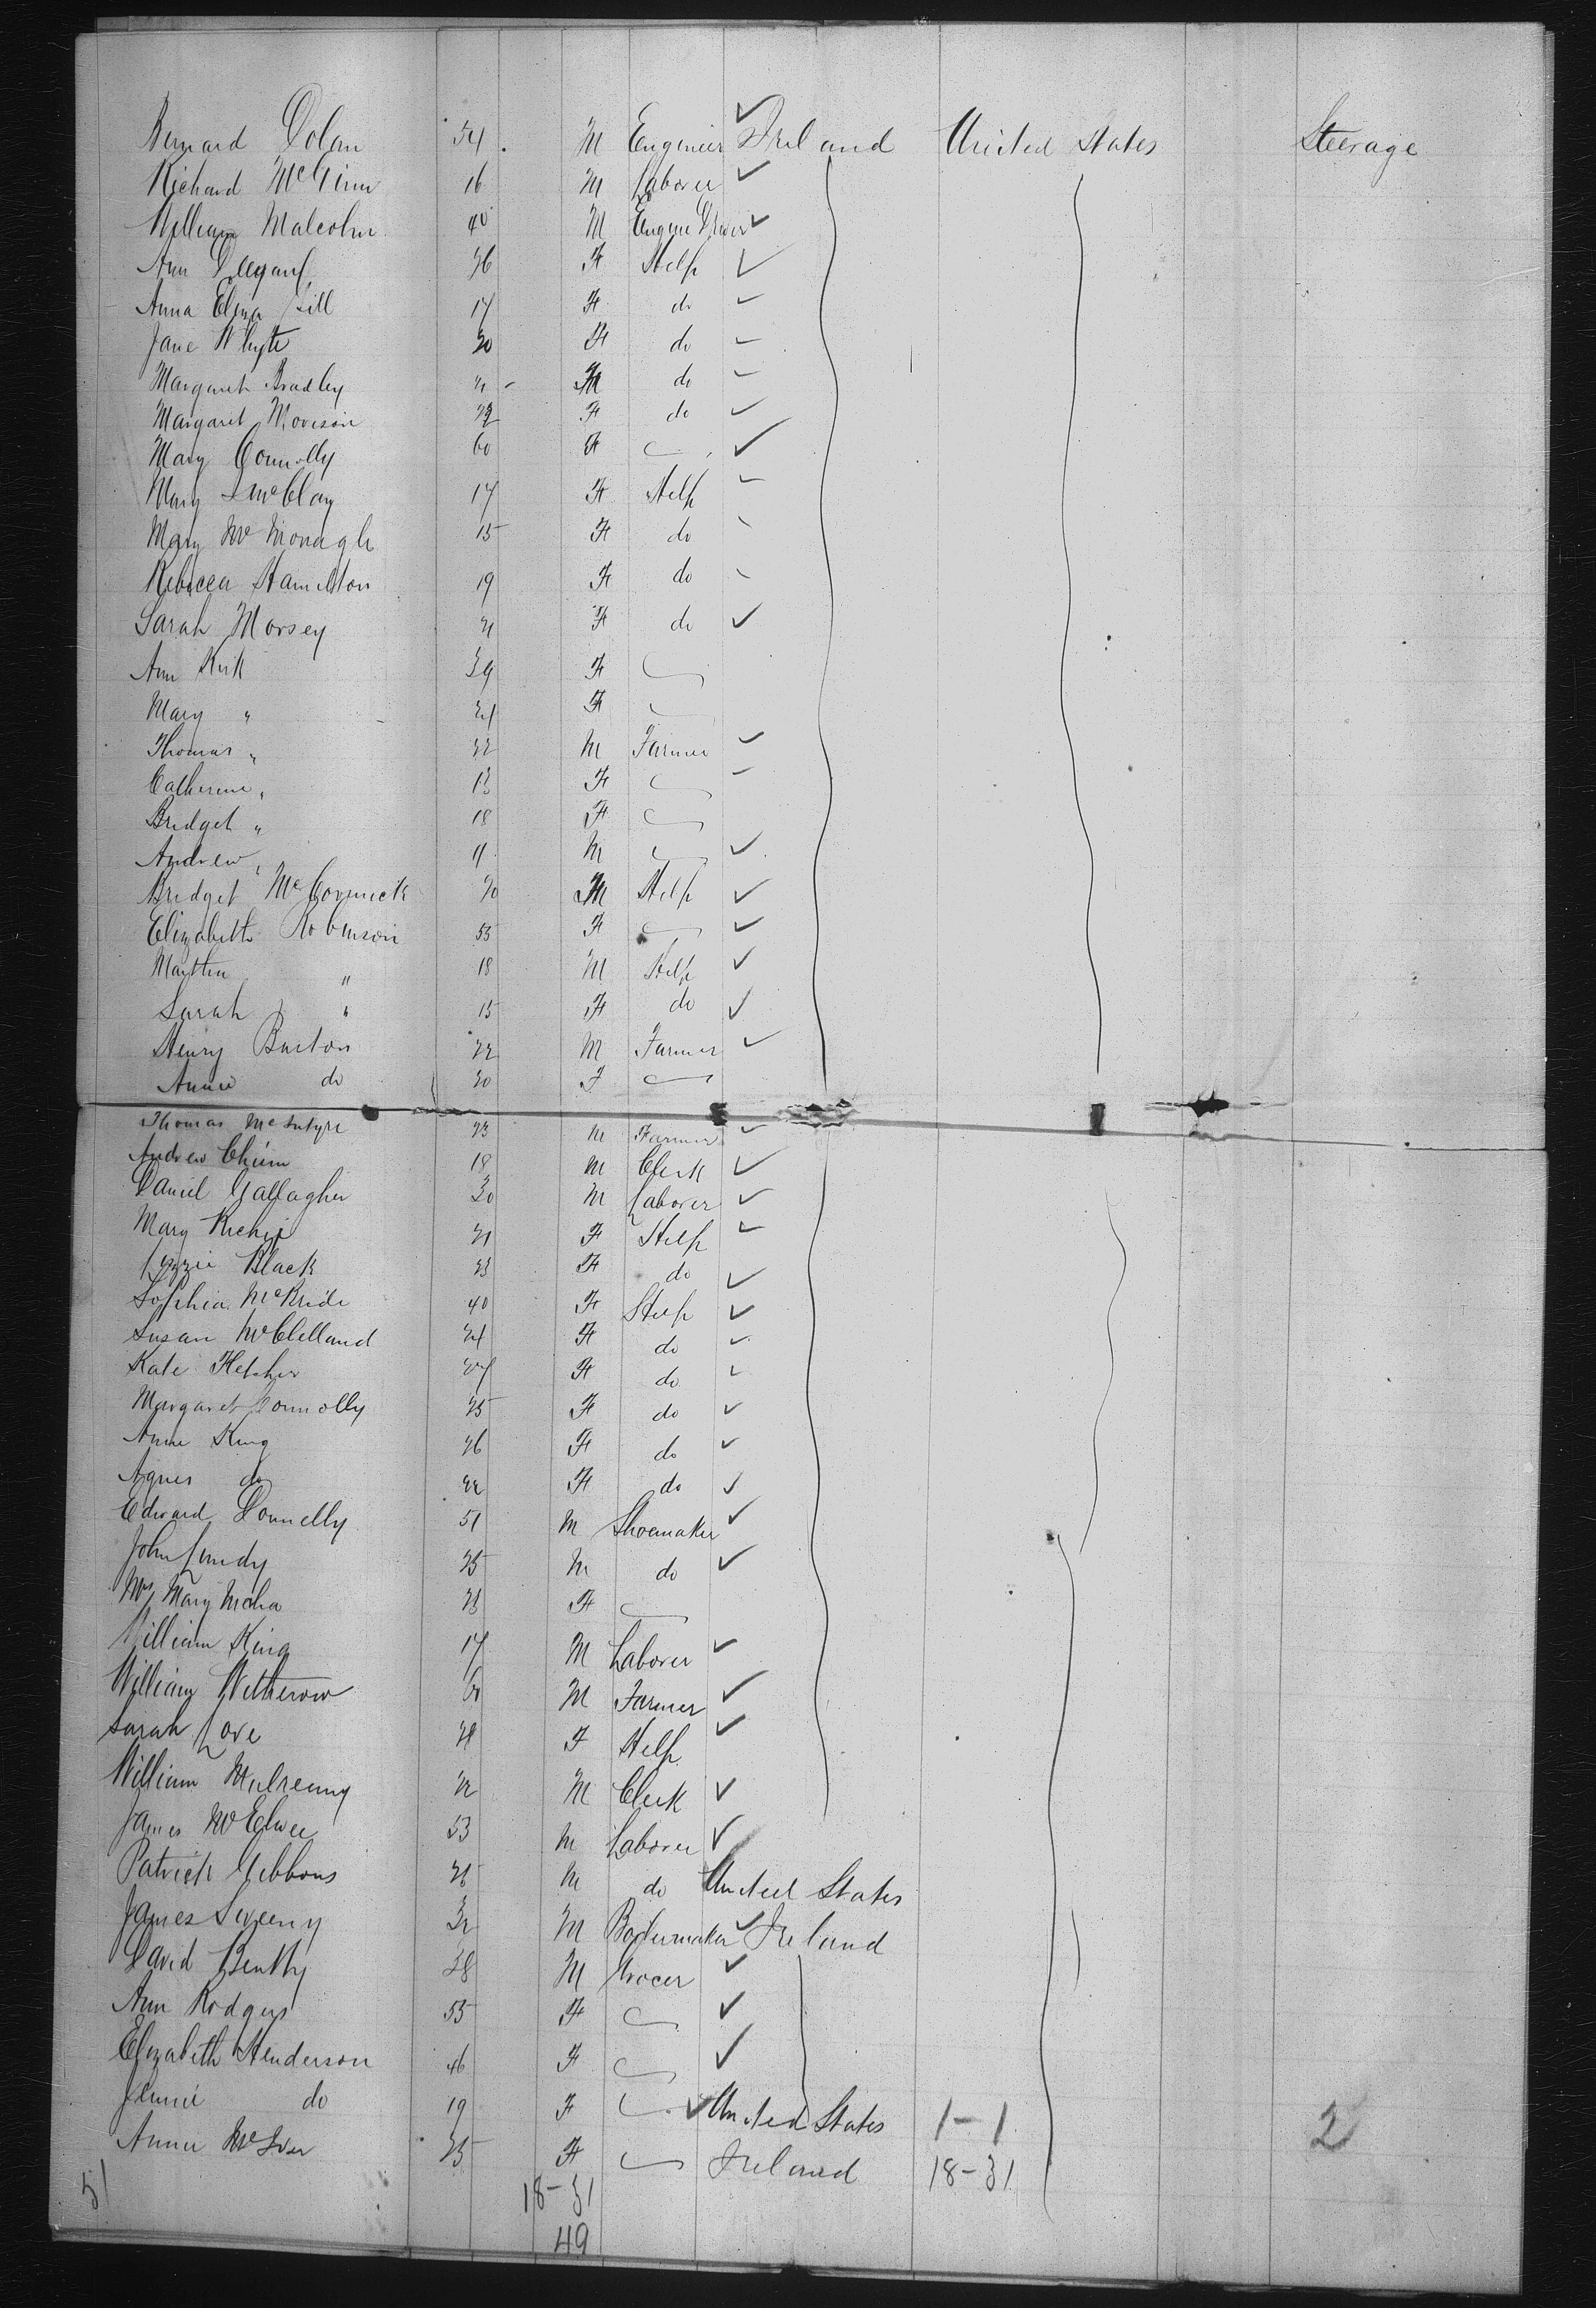 Bernard Dolan 54 M Engineer Ireland United States Steerage
Richard McGinn 16 M Laborer
William Malcolm 40 M Engine Driver
Ann 26 F Help
Anna Eliza Gill 17 F do
Jane Whyte 20 F do
Margaret Bradley 21 F do
Margaret Morison 22 F do
Mary Connolly 60 F
Mary McClay 17 F Help
Mary McMonagle 15 F do
Rebecca Hamilton 19 F do
Sarah Morsey 21 F do
Ann Kirk 59 F
Mary " 24 F
Thomas " 22 M Farmer
Catherine " 13 F
Bridget " 18 F
Andrew " 11 M
Bridget McCormick 20 Help
Elizabeth Robinson 55 F
Martha " 18 M Help
Sarah " 15 F do
Henry Burton 22 M Farmer
Annie do 20 F
Thomas McIntyre 23 M Farmer
Andrew 18 M Clerk
Daniel Gallagher 30 M Laborer
Mary 21 F Help
Lizzie Black 23 F do
Sophia McBride 40 F Help
Susan McClelland 24 F do
Kate Fletcher 27 F do
Margaret Connolly 25 F do
Annie King 26 F do
Agnes do 22 F do
Edward Donnelly 51 M Shoemaker
John Lundy 25 M do
Mrs Mary 23 F
William King 17 M Laborer
William Witherow 60 M Farmer
Sarah Love 21 F Help
William 22 M Clerk
James McElwee 53 M Laborer
Patrick Gibbons 26 M do United States
James Sweeny 32 M Boilermaker Ireland
David 28 M Grocer
Ann Rodgers 55 F
Elizabeth Henderson 46 F
Jennie do 19 F United States 1-1 2
Annie McIver 25 F Ireland 18-31
51 18-31
49